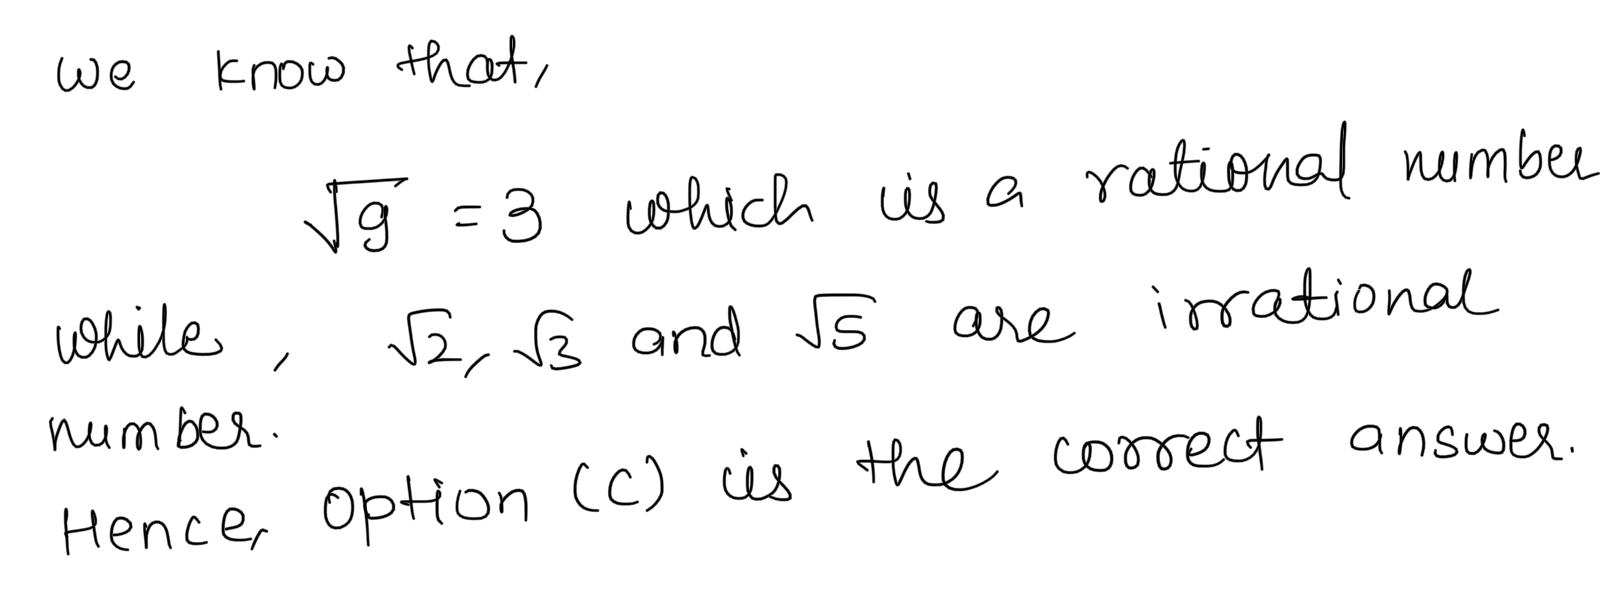 we know that,
√9 = 3 which is a rational number
while, √2, √3 and √5 are irrational
number.
Hence, option (c) is the correct answer.